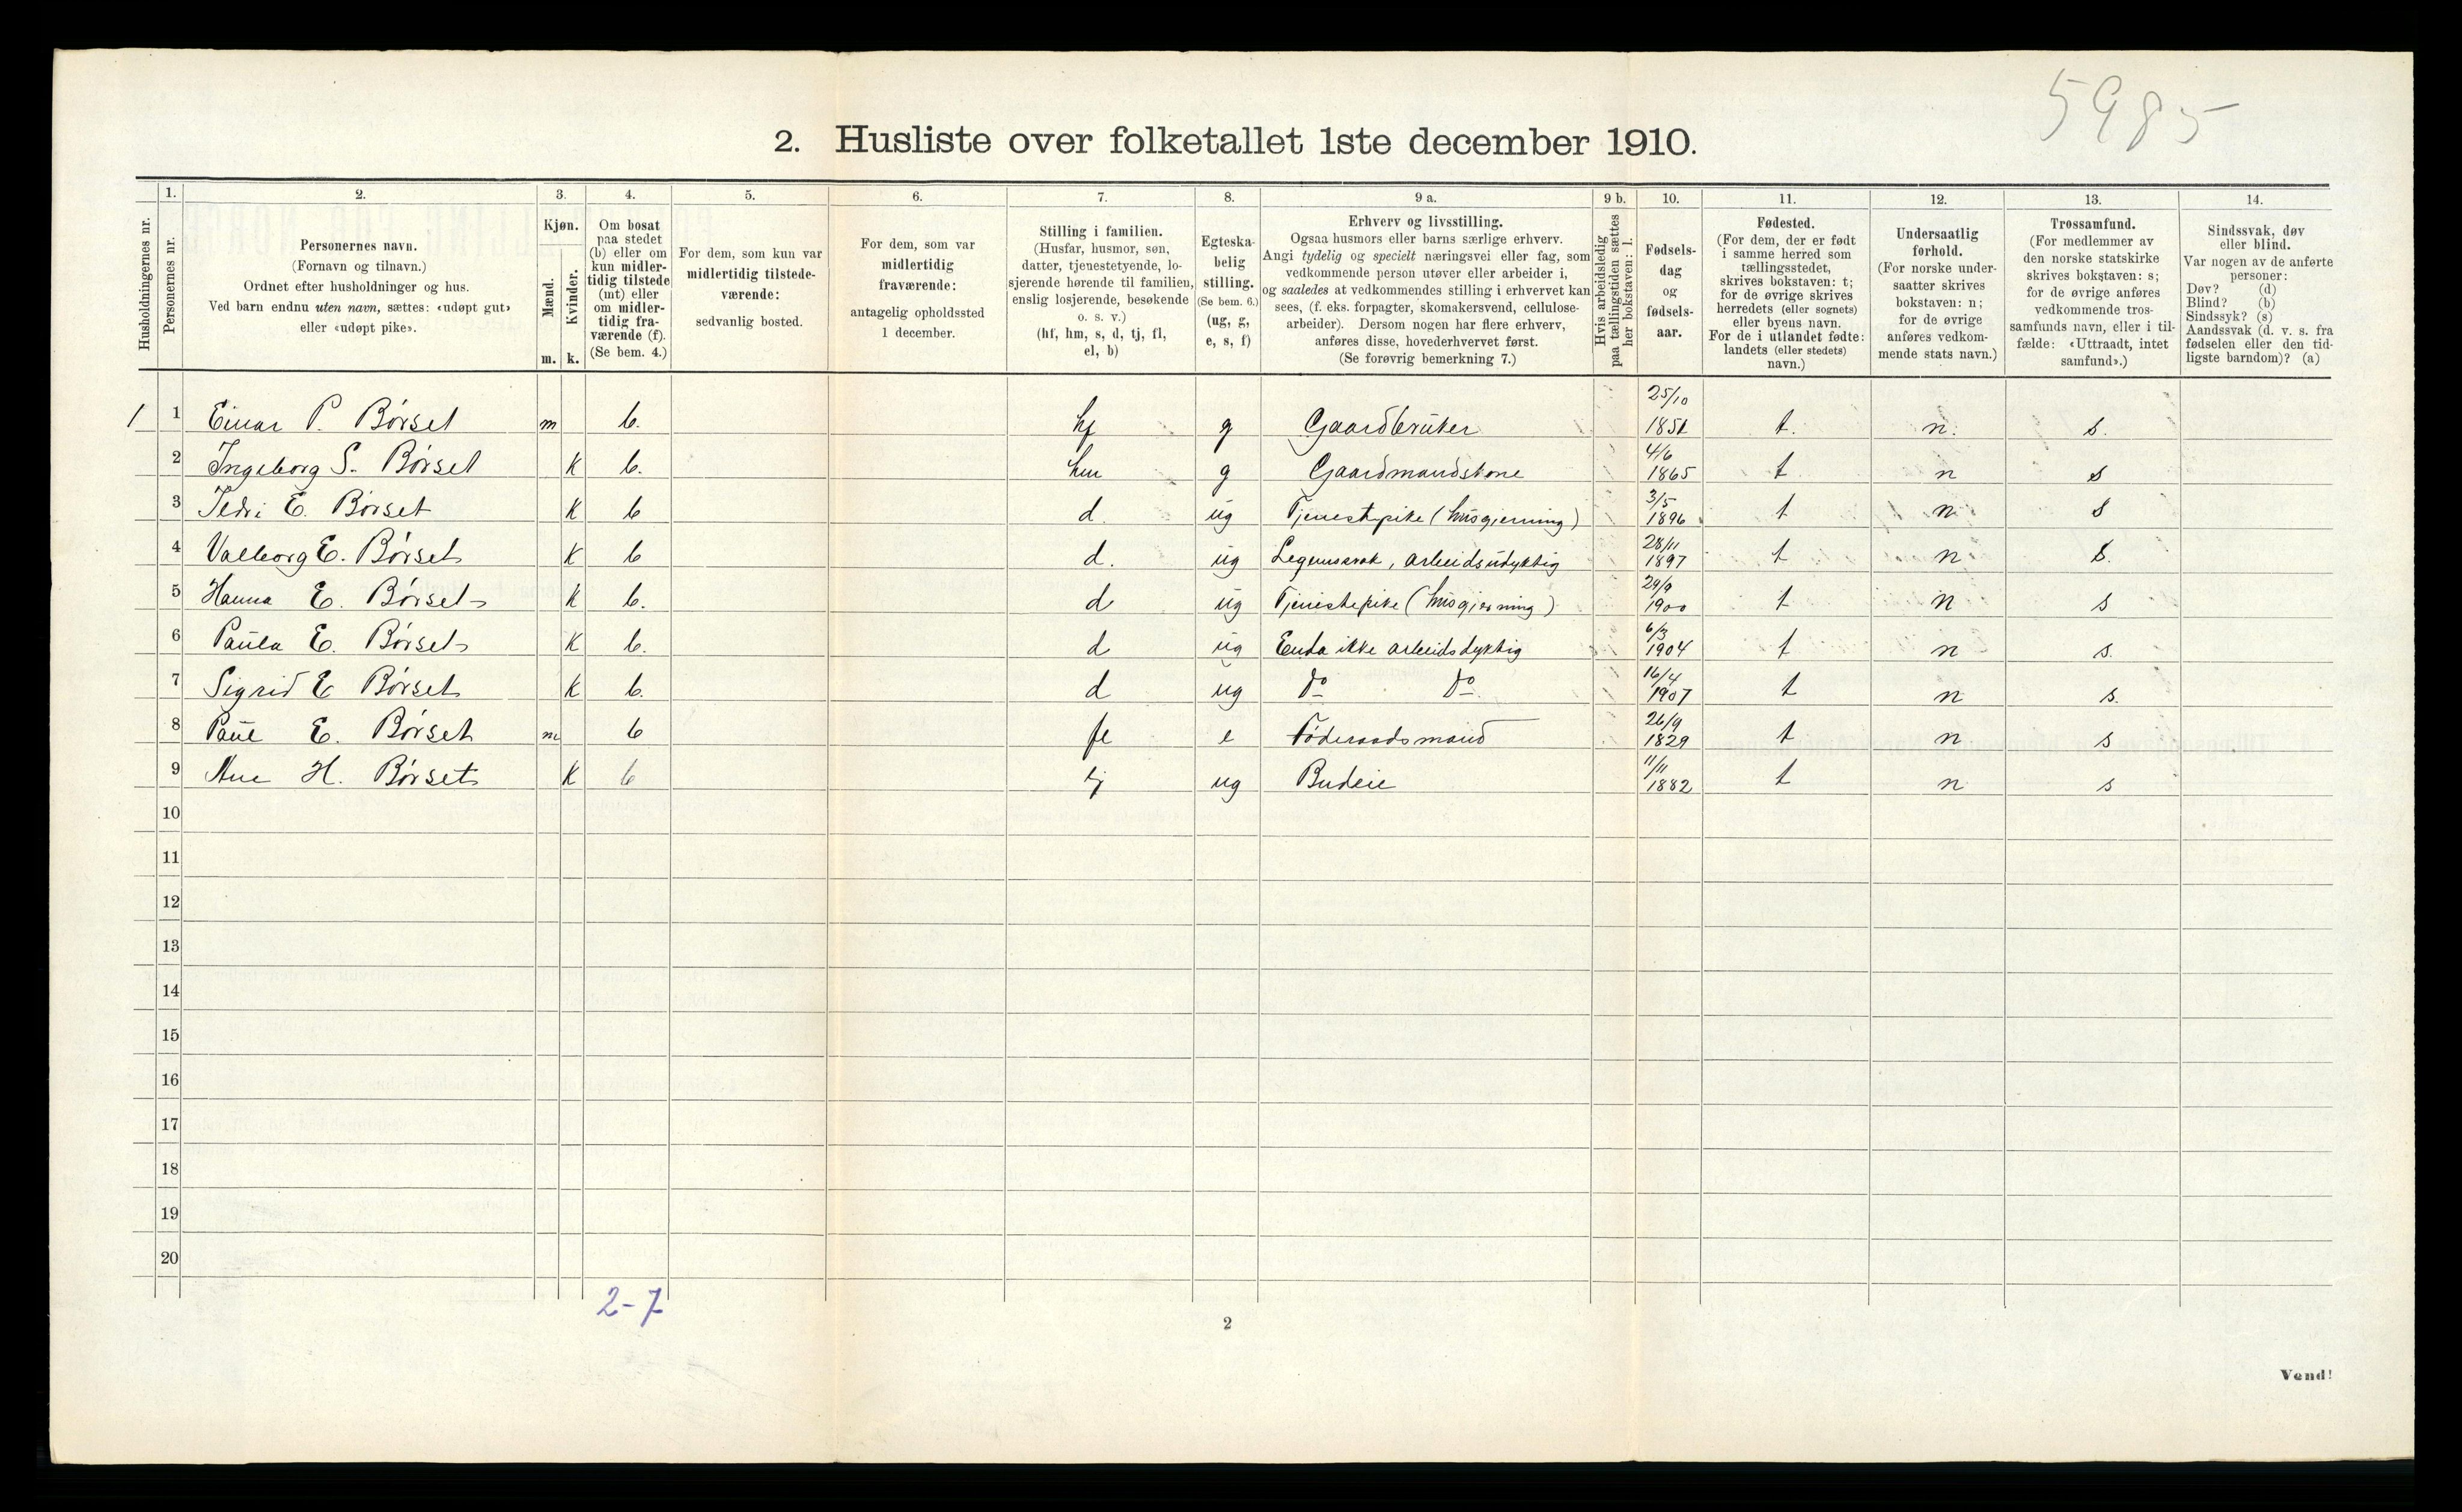 5985
2. Husliste over folketallet 1ste december 1910.
1. 2. 3. 4. 5. 6. 7. 8. 9 a. 9 b. 10. 11. 12. 13. 14.
Husholdningernes nr.
Personernes nr.
Personernes navn.
(Fornavn og tilnavn.)
Ordnet efter husholdninger og hus.
Ved barn endnu uten navn, sættes: «udøpt gut»
eller «udøpt pike».
Kjøn.
Mænd.
Kvinder.
m. k.
Om bosat
paa stedet
(b) eller om
kun midler-
tidig tilstede
(mt) eller
om midler-
tidig fra-
værende (f).
(Se bem. 4.)
For dem, som kun var
midlertidig tilstede-
værende:
sedvanlig bosted.
For dem, som var
midlertidig
fraværende:
antagelig opholdssted
1 december.
Stilling i familien.
(Husfar, husmor, søn,
datter, tjenestetyende, lo-
sjerende hørende til familien,
enslig losjerende, besøkende
o. s. v.)
(hf, hm, s, d, tj, fl,
el, b)
Egteska-
belig
stilling.
(Se bem. 6.)
(ug, g,
e, s, f)
Erhverv og livsstilling.
Ogsaa husmors eller barns særlige erhverv.
Angi tydelig og specielt næringsvei eller fag, som
vedkommende person utøver eller arbeider i,
og saaledes at vedkommendes stilling i erhvervet kan
sees, (f. eks. forpagter, skomakersvend, cellulose-
arbeider). Dersom nogen har flere erhverv,
anføres disse, hovederhvervet først.
(Se forøvrig bemerkning 7.)
Hvis arbeidsledig
paa tællingstiden sættes
her bokstaven: l.
Fødsels-
dag
og
fødsels-
aar.
Fødested.
(For dem, der er født
i samme herred som
tællingsstedet,
skrives bokstaven: t;
for de øvrige skrives
herredets (eller sognets)
eller byens navn.
For de i utlandet fødte:
landets (eller stedets)
navn.)
Undersaatlig
forhold.
(For norske under-
saatter skrives
bokstaven: n;
for de øvrige
anføres vedkom-
mende stats navn.)
Trossamfund.
(For medlemmer av
den norske statskirke
skrives bokstaven: s;
for de øvrige anføres
vedkommende tros-
samfunds navn, eller i til-
fælde: «Uttraadt, intet
samfund».)
Sindssvak, døv
eller blind.
Var nogen av de anførte
personer:
Døv? (d)
Blind? (b)
Sindssyk? (s)
Aandssvak (d. v. s. fra
fødselen eller den tid-
ligste barndom)? (a)
1 1 Einar P. Børset m b. hf g Gaardbruker 25/10 1851 t. n. s.
2 Ingeborg S. Børset K b. hm g Gaardmandskone 4/6 1865 t n s
3 E. Børset K b d. ug Tjenestpike (husgjerning) 3/5 1896 t n s
4 Valborg E. Børset K b d. ug Legemssvak, arbeidsudyktig 28/11 1897 t n s.
5 Hanna E. Børset K b. d ug Tjenestepike (husgjerning) 29/9 1900 t n s
6 Paula E. Børset K b. d ug Enda ikke arbeidsdyktig 6/3 1904 t n s.
7 Sigrid E Børset K b. d ug do do. 16/4 1907 t n s.
8 Paul E. Børset m b fl e Føderaadsmand 26/9 1829 t n s
9 Ane H. Børset K b tj ug Budeie 11/11 1882 t n s
10
11
12
13
14
15
16
17
18
19
20
2-7
2
Vend!